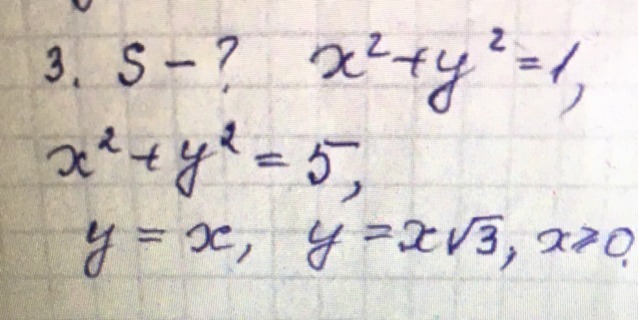 3. S - ? x² + y² = 1,
x² + y² = 5,
y = x, y = x√3, x ≥ 0.